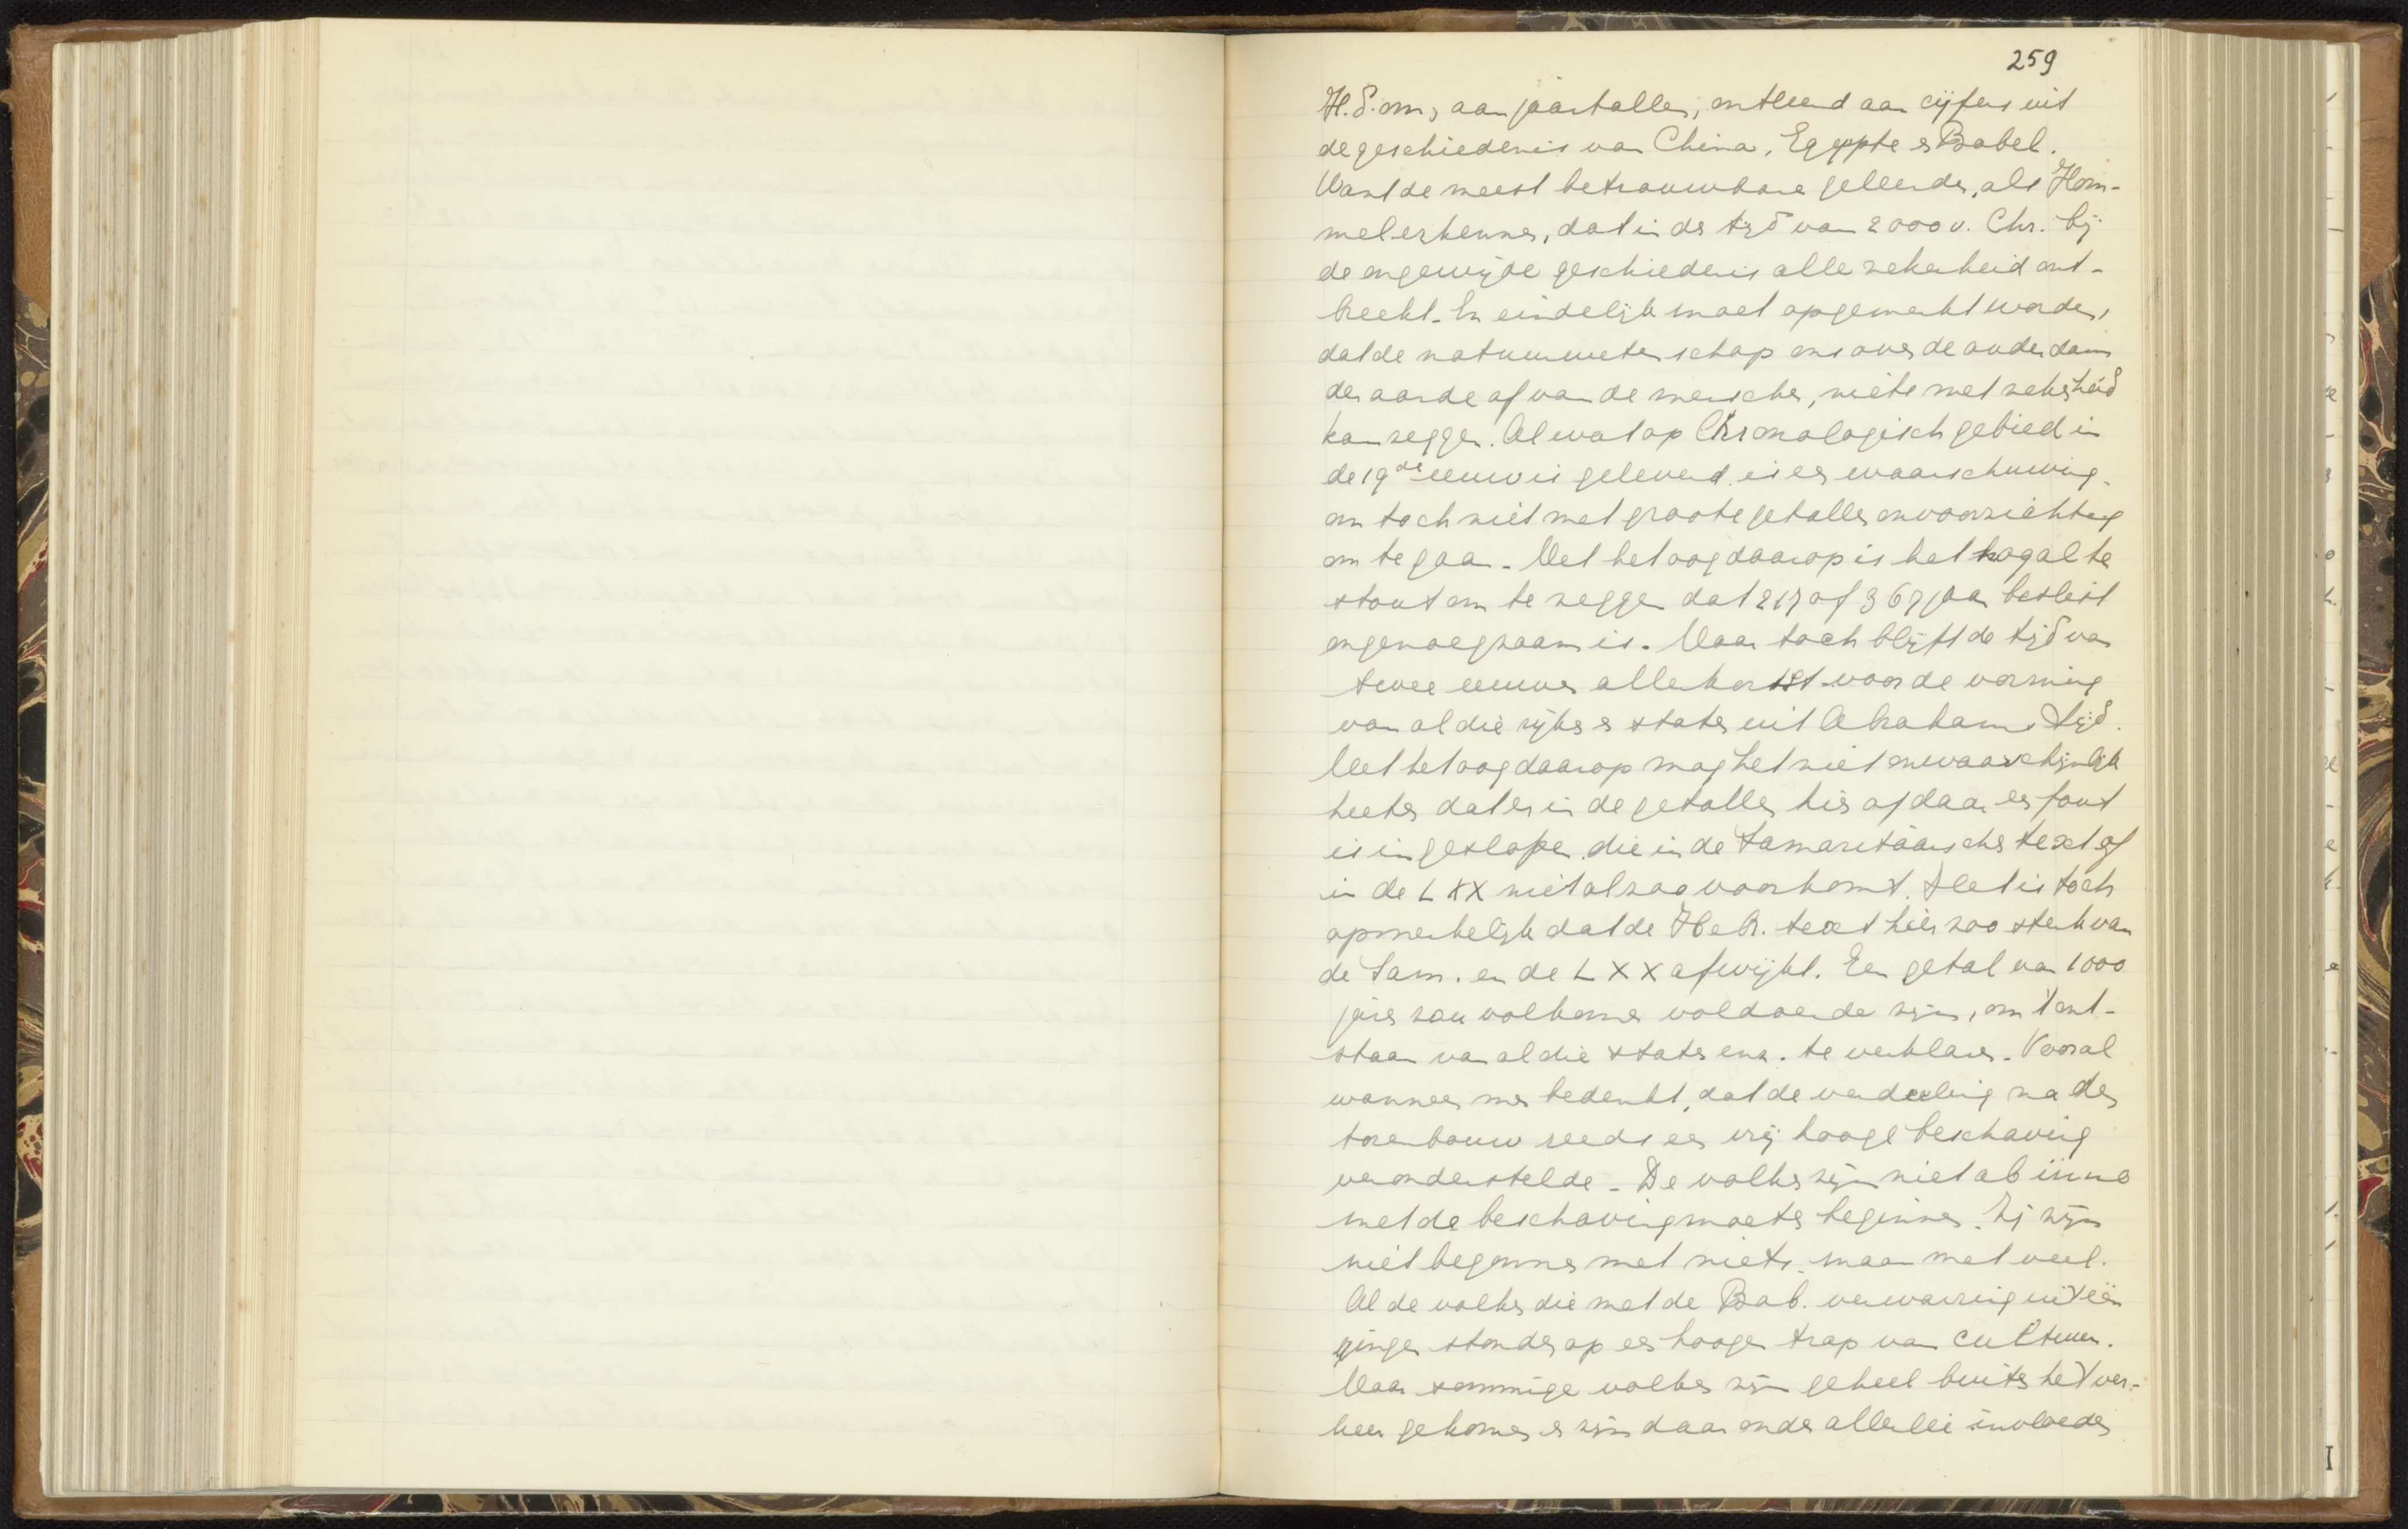 259
H.S. om, aan jaartallen, ontleend aan cijfers uit
de geschiedenis van China, Egypte en Babel.
Want de meest betrouwbare geleerden, als Hom-
mel erkennen, dat in de tijd van 2000 v. Chr. bij
de ongewijde geschiedenis alle zekerheid ont-
breekt. En eindelijk moet opgemerkt worden,
dat de natuurwetenschap ons over de ouderdom
der aarde of van de menschen, niets met zekerheid
kan zeggen. Al wat op Chronologisch gebied in
de 19de eeuw is geleverd, is een waarschuwing,
om toch niet met groote getallen onvoorzichtig
om te gaan. Met het oog daarop is het nogal te
stout om te zeggen dat 217 of 367 jaar beslist
ongenoegzaam is. Maar toch blijft de tijd van
twee eeuwen allerkortst voor de vorming
van al die rijken en staten uit Abrahams tijd.
Met het oog daarop mag het niet onwaarschijnlijk
heeten dat er in de getallen hier of daar een fout
is ingeslopen die in de Samaritaansche text of
in de LXX niet alzoo voorkomt. Het is toch
opmerkelijk dat de Hebr. text hier zoo sterk van
de Sam. en de LXX afwijkt. Een getal van 1000
jaren zou volkomen voldoende zijn, om 't ont-
staan van al die staten enz. te verklaren. Vooral
wanneer men bedenkt, dat de verdeeling na den
torenbouw reeds een vrij hooge beschaving
veronderstelde. De volken zijn niet ab imo
met de beschaving moeten beginnen. Zij zijn
niet begonnen met niets, maar met veel.
Al de volken die met de Bab. verwarring uitéén
gingen stonden op een hoogen trap van cultuur.
Maar sommige volken zijn geheel buiten het ver-
keer gekomen en zijn daar onder allerlei invloeden